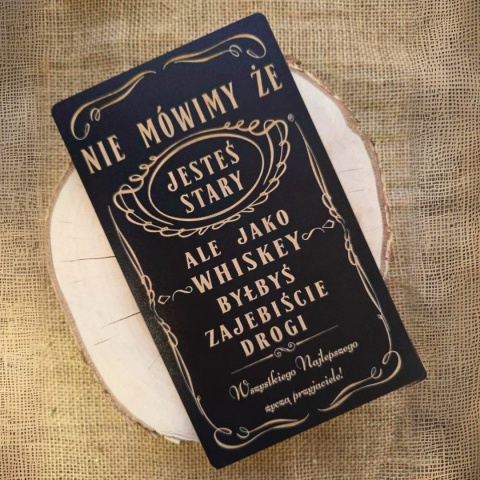 NIE MÓWIMY ŻE
JESTEŚ
STARY
ALE JAKO
WHISKEY
BYŁBYŚ
ZAJEBIŚCIE
DROGI
Wszystkiego Najlepszego
życzą przyjaciele!